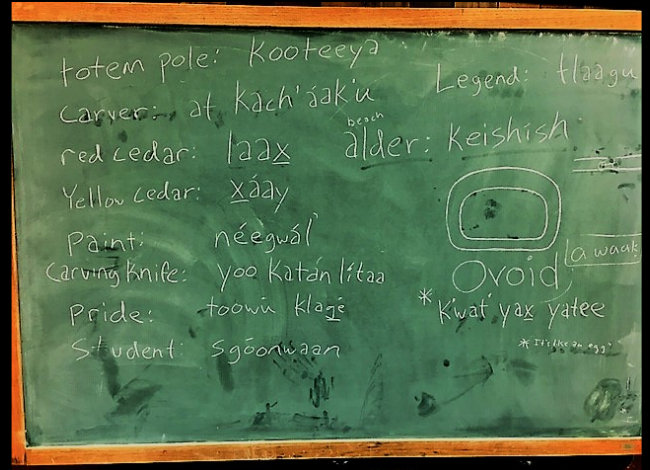 totem pole: Kooteeya
Carver: at kach'áak'u
red cedar: laax̲
Yellow cedar: x̲áay
Paint: néegwál'
Carving Knife: yoo katán lítaa
Pride: toowú klag̲é
Student: sgóonwaan
Legend: tlaagu
beach
alder: Keishísh
Ovoid
a waak̲
* K'wát' yax̲ yatee
* It's like an egg